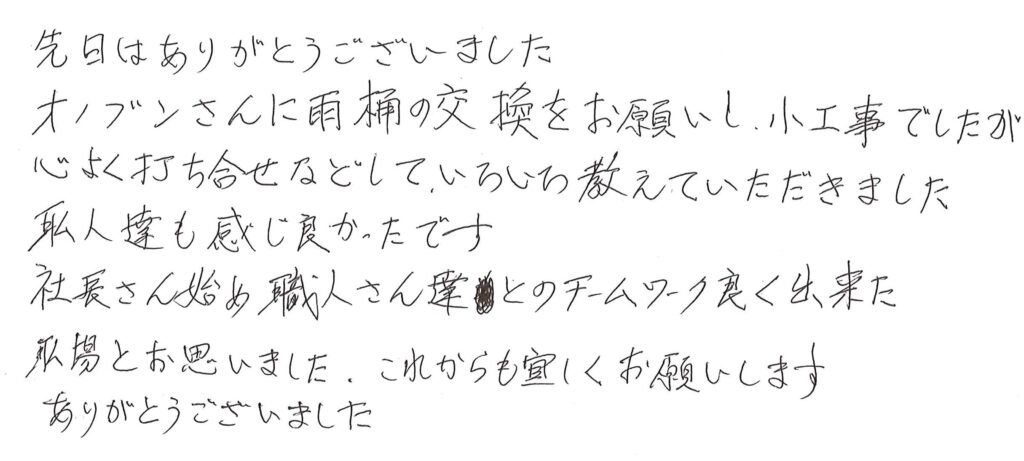 先日はありがとうございました
オノブンさんに雨樋の交換をお願いし、小工事でしたが
心よく打ち合せなどして、いろいろ教えていただきました
耺人達も感じ良かったです
社長さん始め職人さん達とのチームワーク良く出来た
耺場とお思いました。これからも宜しくお願いします
ありがとうございました